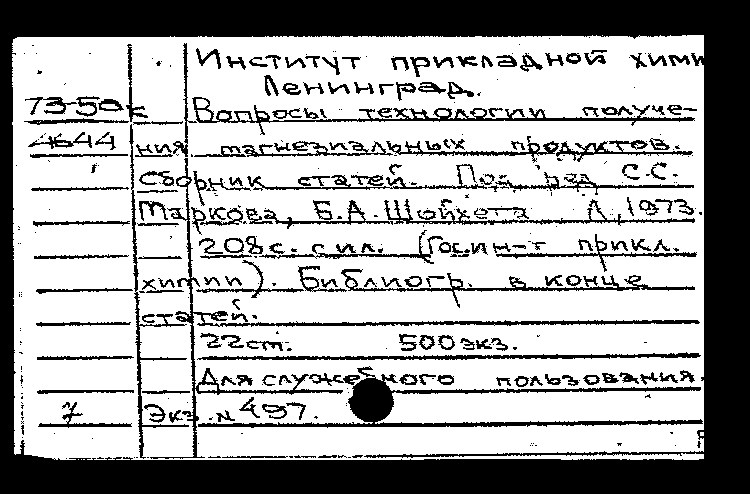 Институт прикладной хими
Ленинград.
73-50к Вопросы технологии получе-
4644 ния магнезиальных продуктов.
Сборник статей. Под ред С.С.
Маркова, Б.А. Шойхета Л., 1973.
208с. с ил. (Гос.ин-т прикл.
химии). Библиогр. в конце
статей.
22ст. 500экз.
Для служебного пользования.
7 Экз. N 497.